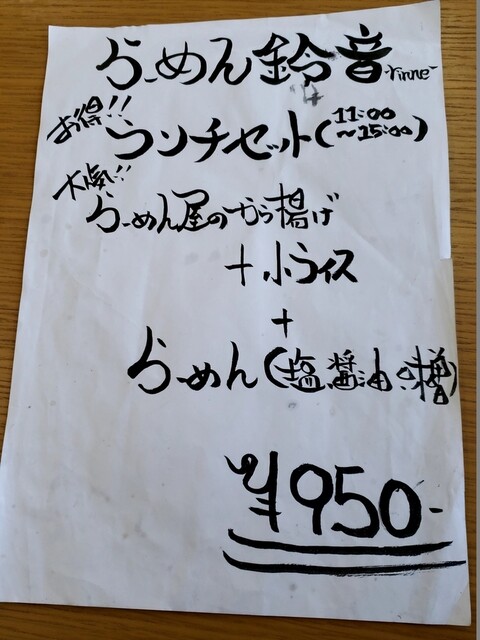 らーめん鈴音-rinne-
お得!!
ランチセット(11:00
～15:00)
大人気!!
らーめん屋のから揚げ
+小ライス
+
らーめん(塩・醤油・味噌)
¥950-